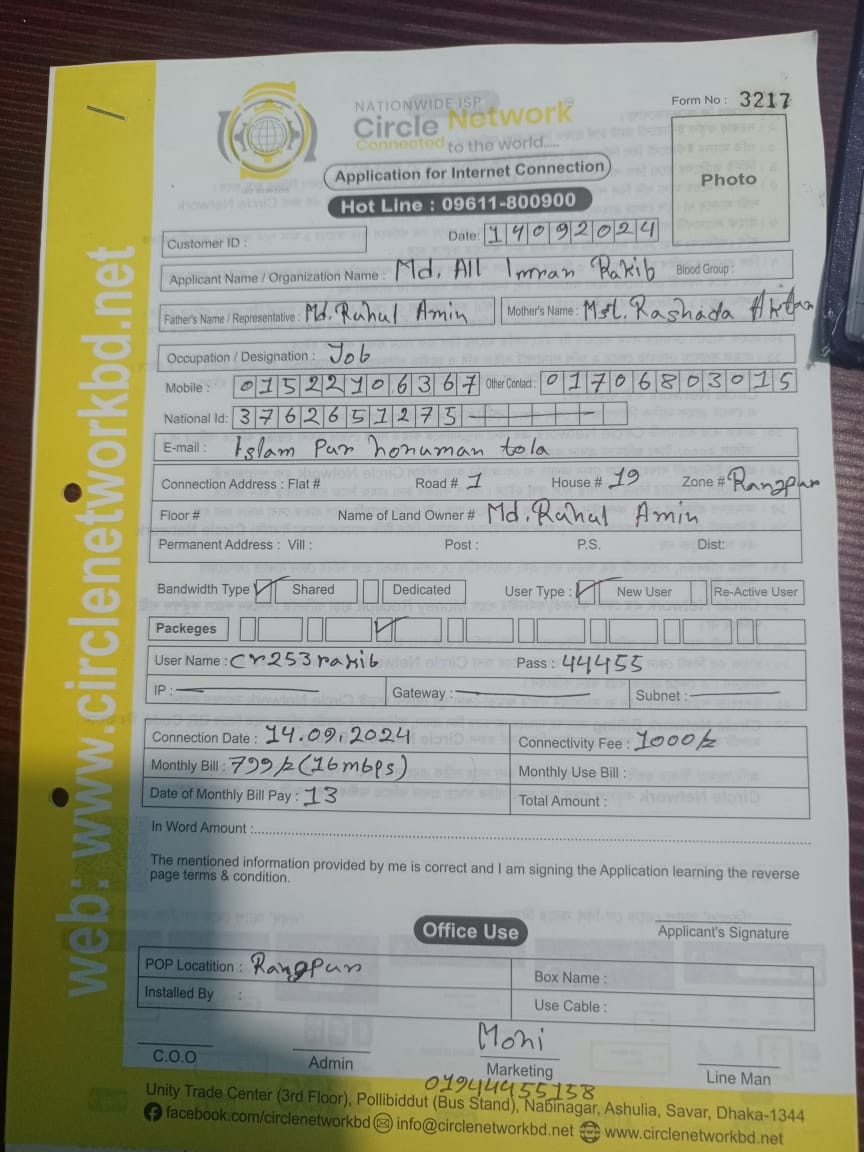 NATIONWIDE ISP
Circle Network
Connected to the world.....
Form No : 3217
Application for Internet Connection
Photo
Hot Line : 09611-800900
Customer ID :
Date: 14092024
Applicant Name / Organization Name : Md. All Imran Rakib Blood Group :
Father's Name / Representative : Md. Ruhul Amin Mother's Name : Mst. Rashada Aktar
Occupation / Designation : Job
Mobile : 01522106367 Other Contact : 01706803015
National Id: 3762651275
E-mail : Islam Pur honuman tola
Connection Address : Flat # Road # 1 House # 19 Zone # Rangpur
Floor # Name of Land Owner # Md. Ruhul Amin
Permanent Address : Vill : Post : P.S. Dist:
Bandwidth Type Shared Dedicated User Type : New User Re-Active User
Packeges
User Name : cr253rakib Pass : 44455
IP : Gateway : Subnet :
Connection Date : 14.09.2024 Connectivity Fee : 1000/-
Monthly Bill : 799/- (16mbps) Monthly Use Bill :
Date of Monthly Bill Pay : 13 Total Amount :
In Word Amount :
The mentioned information provided by me is correct and I am signing the Application learning the reverse
page terms & condition.
Office Use
Applicant's Signature
POP Locatition : Rangpur Box Name :
Installed By : Use Cable :
Moni
C.O.O Admin Marketing Line Man
01944455158
Unity Trade Center (3rd Floor), Pollibiddut (Bus Stand), Nabinagar, Ashulia, Savar, Dhaka-1344
facebook.com/circlenetworkbd info@circlenetworkbd.net www.circlenetworkbd.net
web: www.circlenetworkbd.net